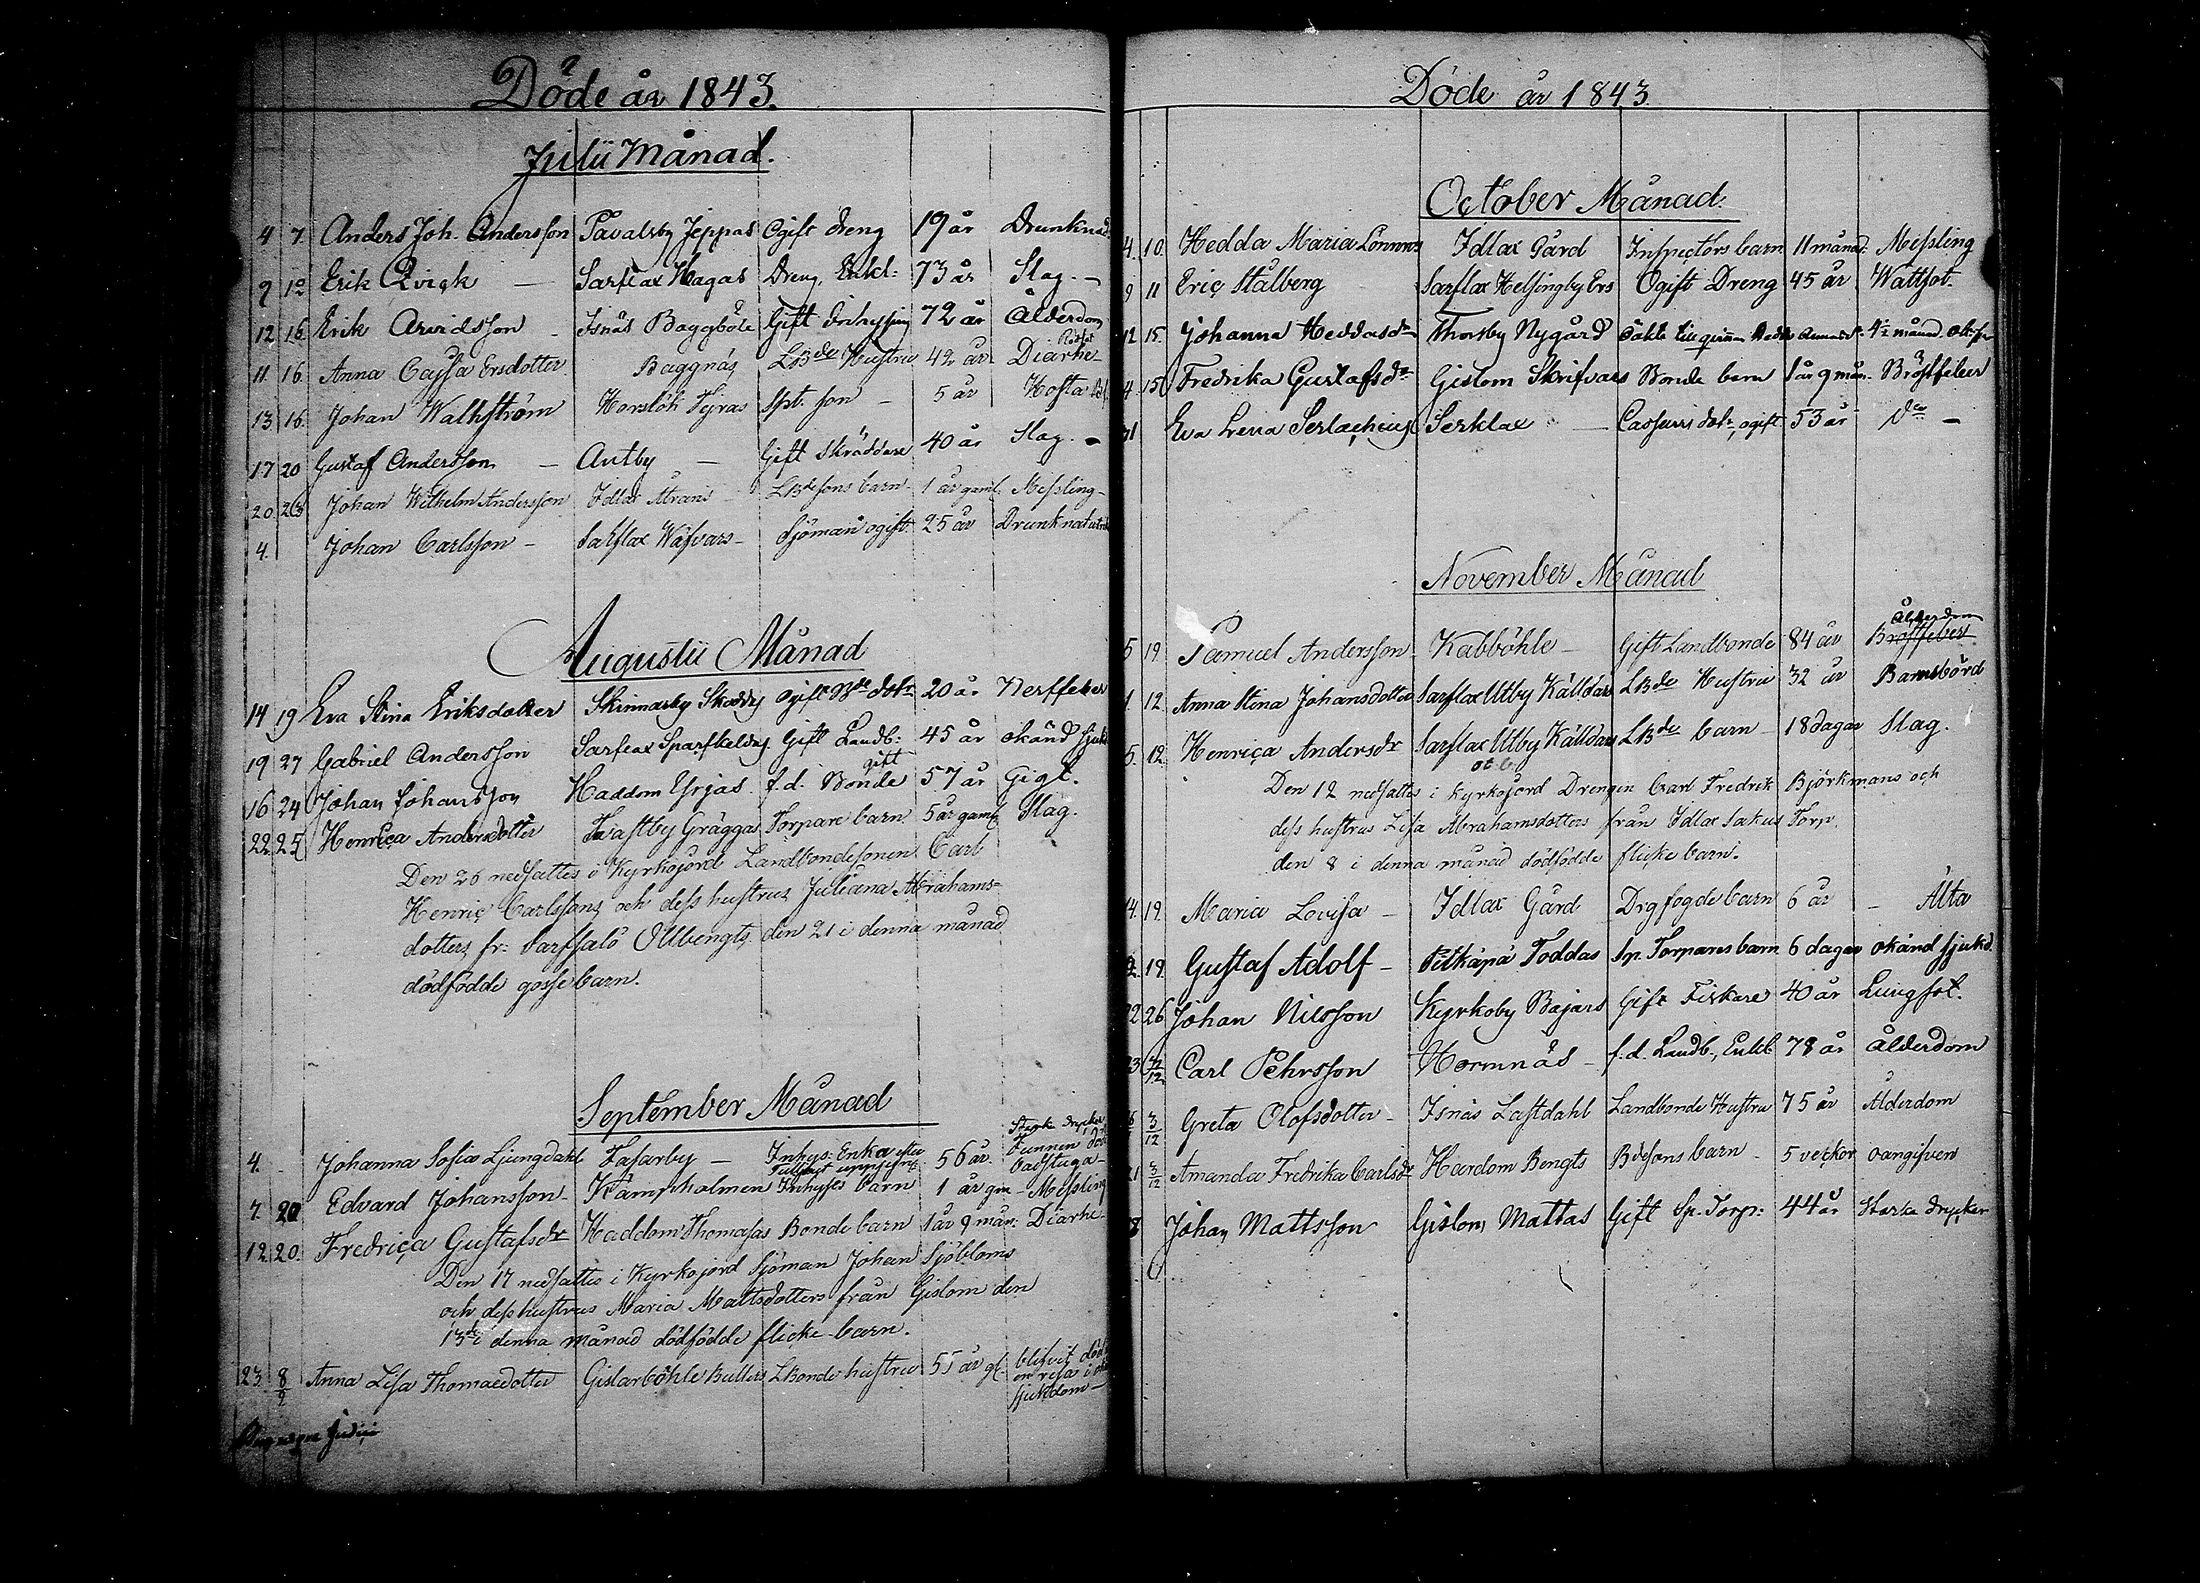 Döde år 1843.
Julii Månad.
4 7. Anders Joh. Andersson Påvalsby Jeppas Ogift dreng 19 år Drunknad
9 12 Erik Qvick — Sarflax Hagas Dreng, Enkl: 73 år Slag. —
12 16 Erik Arvidsson — Isnäs Baggböle Gift Inhysing 72 år Ålderdom
11. 16. Anna Cajsa Ersdotter Baggnäs LBde Hustru 42 år Rödsot Diarhe
13 16. Johan Wathström Horslök Tyras Spt. son — 5 år Hosta
17 20 Gustaf Andersson — Antby — Gift Skräddare 40 år Slag. —
20 23 Johan Wilhelm Andersson Idlax LBdesons barn 1 år gaml. Messling —
4. Johan Carlsson — Sarflax Wäfvars — Sjöman ogift 25 år Drunknat
Augustii Månad
14 19 Eva Stina Eriksdotter Skinnarby ogift Bde dotr 20 år Nerffeber
19 27 Gabriel Andersson Sarflax Gift Landb: 45 år okänd sjukd
16 24 Johan Johansson Haddom Yrjas f.d. Bonde gift 57 år Gigt.
22 25 Henrica Andersdotter Tvastby Gräggas Torpare barn 5 år gaml Slag.
Den 26 nedsattes i Kyrkojord Landbondesonen Carl
Henric Carlssons och dess hustrus Juliana Abrahams-
dotters fr: Sarfsalö Ollbengts den 21 i denna månad
dödfödde gossebarn.
September Månad
4. Johanna Sofia Ljungdahl Fasarby — Inhys: Enka 56 år. Starka drycker Funnen död badstuga
7. 20 Edvard Johansson — Kämpholmen Inhyses barn 1 år gm — Messling
12 20. Fredrica Gustafsdr Haddom Thomasas Bonde barn 1 år 9 mån: Diarhe —
Den 17 nedsattes i Kyrkojord Sjöman Johan Sjöbloms
och dess hustrus Maria Mattsdotters från Gislom den
13de i denna månad dödfödde flicke barn.
23 8/2 Anna Lisa Thomaedotter Gislarböhle Bullers LBonde hustru 55 år gl. blifvit död en resa i sjukdom —
Döde år 1843
October Månad.
4. 10. Hedda Maria Idlax Gård Inspectors barn 11 månad. Messling
9 11 Eric Stålberg Sarflax Helsingby Ers Ogift Dreng 45 år Wattsot.
12 15. Johanna Heddasdr Thorsby Nygård Oäkta 4½ månad
4 15 Fredrika Gustafsdr Gislom Skrifvars Bonde barn 1 år 9 mån. Bröstfeber
31 Eva Lena Serlachius Serklax — dotr, ogift 53 år do —
November Månad
5 19 Samuel Andersson Kabböhle — Gift Landbonde 84 år Ålderdom Bröstfeber
1. 12. Anna Stina Johansdotter Sarflax Utby Källdars LBde Hustru 32 år Barnsbörd
5. 12. Henrica Andersdr Sarflax Utby Källdars LBde barn — 18 dagar Slag.
Den 12 nedsattes i Kyrkojord Drengen Carl Fredrik Björkmans och
dess hustrus Lisa Abrahamsdotters från Idlax Sakus Torp.
den 8 i denna månad dödfödde flicke barn.
14. 19. Maria Lovisa — Idlax Gård Drgfogde barn 6 år — Älta
19 Gustaf Adolf — Pitkäpä Toddas Sp. Torpares barn 6 dagar okänd sjukd.
22 26 Johan Nilsson Kyrkoby Bajars Gift Fiskare 40 år Lungsot.
23 3/12 Carl Pehrsson Hormnäs — f.d. Landb., Enkl 78 år Ålderdom
3/12 Greta Olofsdotter — Isnäs Lastdahl Landbonde Hustru 75 år Ålderdom
21 3/12 Amanda Fredrika Carlsdr Hardom Bengts Bdesons barn — 5 veckor oangifven
Johan Mattsson Gislom Mattas Gift Sp. Torp: 44 år Starka drycker